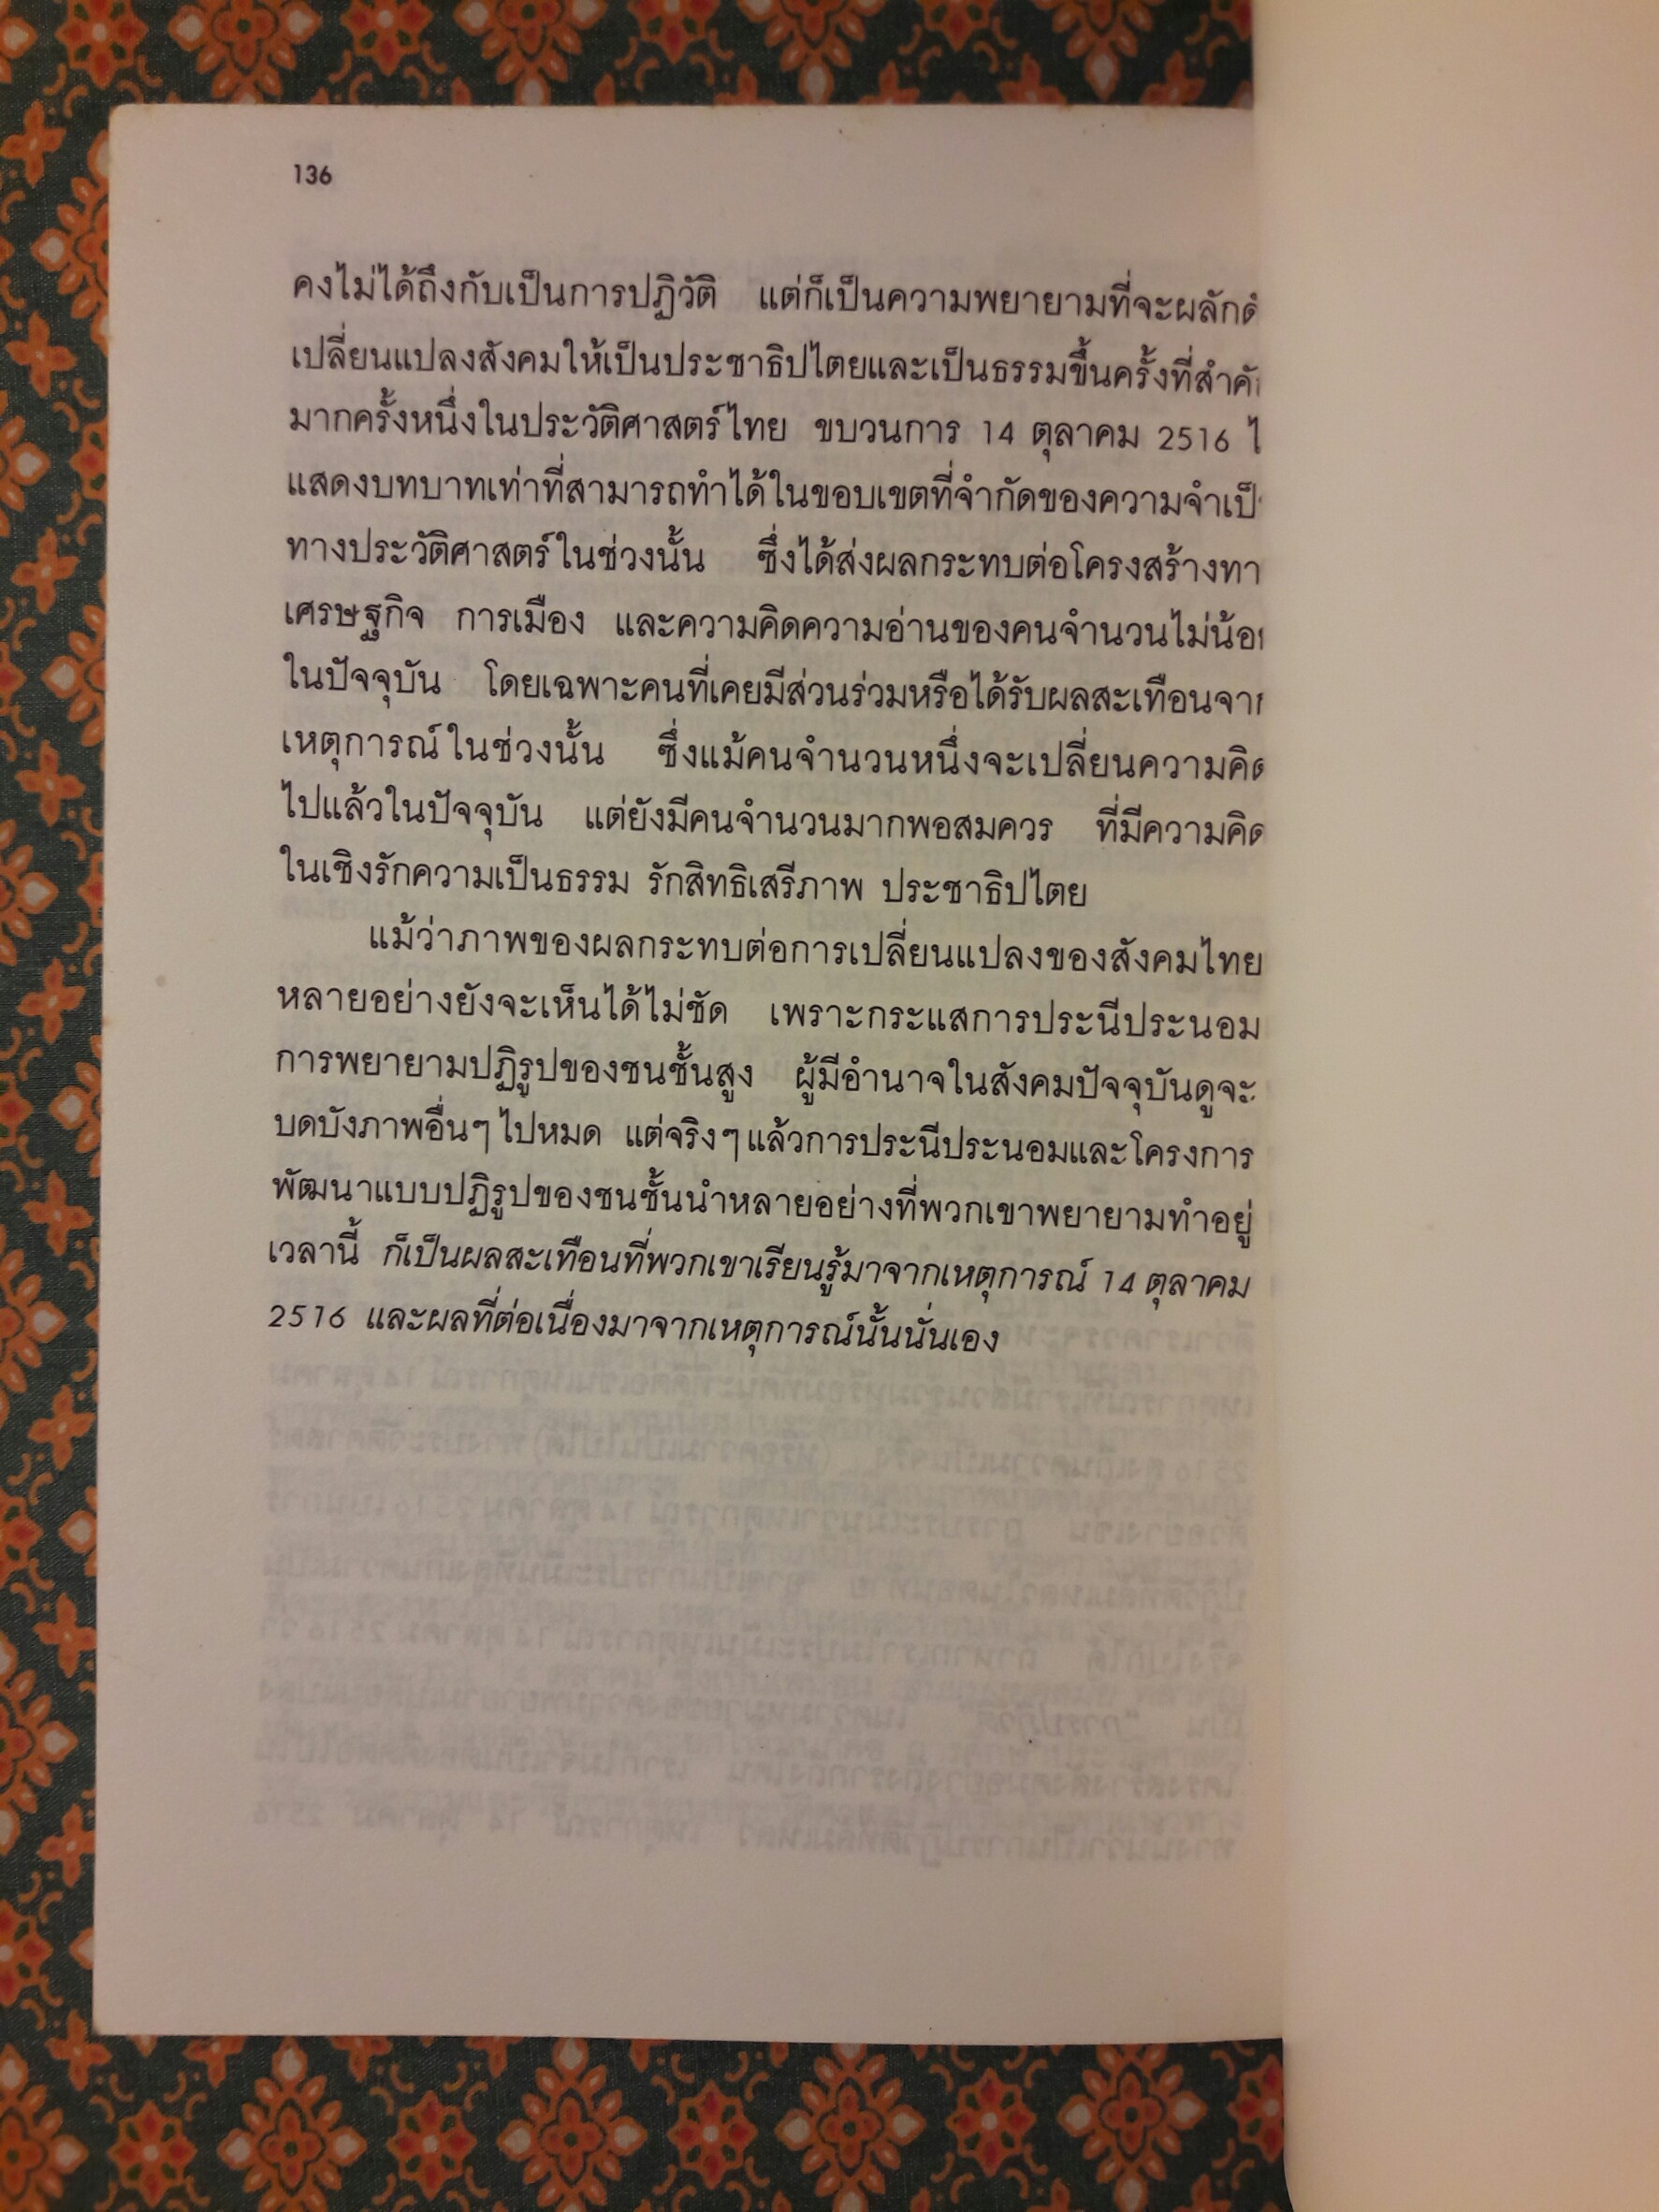 136
คงไม่ได้ถึงกับเป็นการปฏิวัติ แต่ก็เป็นความพยายามที่จะผลักดั
เปลี่ยนแปลงสังคมให้เป็นประชาธิปไตยและเป็นธรรมขึ้นครั้งที่สำคั
มากครั้งหนึ่งในประวัติศาสตร์ไทย ขบวนการ 14 ตุลาคม 2516 ไ
แสดงบทบาทเท่าที่สามารถทำได้ในขอบเขตที่จำกัดของความจำเป็
ทางประวัติศาสตร์ในช่วงนั้น ซึ่งได้ส่งผลกระทบต่อโครงสร้างทา
เศรษฐกิจ การเมือง และความคิดความอ่านของคนจำนวนไม่น้อ
ในปัจจุบัน โดยเฉพาะคนที่เคยมีส่วนร่วมหรือได้รับผลสะเทือนจา
เหตุการณ์ในช่วงนั้น ซึ่งแม้คนจำนวนหนึ่งจะเปลี่ยนความคิด
ไปแล้วในปัจจุบัน แต่ยังมีคนจำนวนมากพอสมควร ที่มีความคิด
ในเชิงรักความเป็นธรรม รักสิทธิเสรีภาพ ประชาธิปไตย
แม้ว่าภาพของผลกระทบต่อการเปลี่ยนแปลงของสังคมไทย
หลายอย่างยังจะเห็นได้ไม่ชัด เพราะกระแสการประนีประนอม
การพยายามปฏิรูปของชนชั้นสูง ผู้มีอำนาจในสังคมปัจจุบันดูจะ
บดบังภาพอื่นๆ ไปหมด แต่จริงๆ แล้วการประนีประนอมและโครงการ
พัฒนาแบบปฏิรูปของชนชั้นนำหลายอย่างที่พวกเขาพยายามทำอยู่
เวลานี้ ก็เป็นผลสะเทือนที่พวกเขาเรียนรู้มาจากเหตุการณ์ 14 ตุลาคม
2516 และผลที่ต่อเนื่องมาจากเหตุการณ์นั้นนั่นเอง